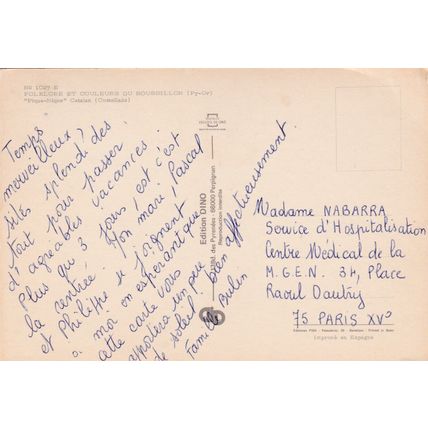 Nº 1027 E
FOLKLORE ET COULEURS DU ROUSSILLON (Py-Or)
"Pique-Nique" Catalan
Temps
merveilleux,
site splendide,
tout pour passer
d'agréables vacances.
Plus que 3 jours, et c'est
la rentrée. Mon mari, Pascal
et Philippe se joignent
à moi en espérant que
cette carte vous
apportera un peu
de soleil.
bien affectueusement
Famille
Edition DINO
des Pyrénées - 66000 Perpignan
Reproduction interdite
Madame NABARRA
Service d'Hospitalisation
Centre Médical de la
M.G.E.N. 34, Place
Raoul Dautry
75 PARIS XVº
Imprimé en Espagne